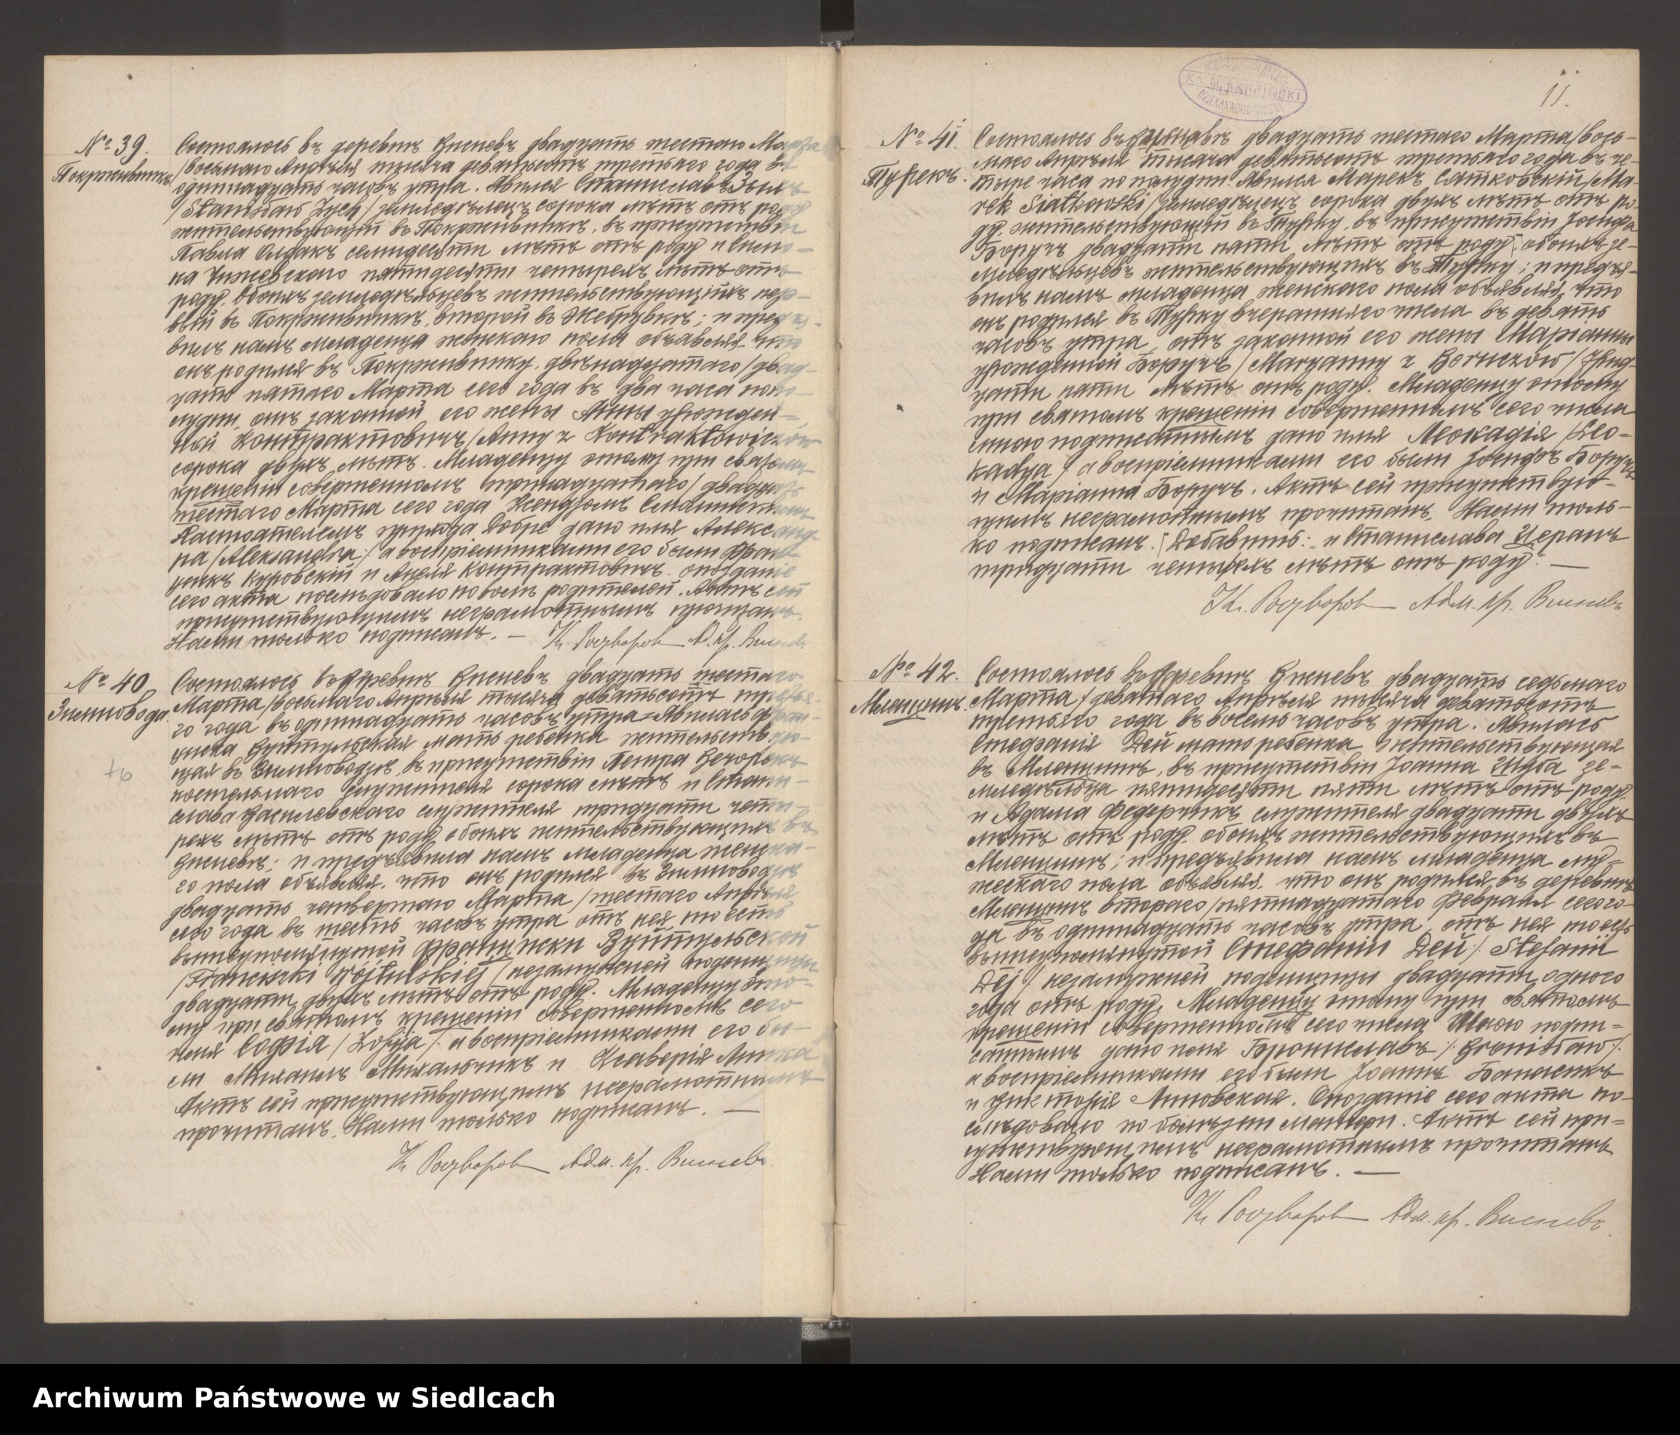 № 39.
Покрживникъ
Состоялось въ деревнѣ Вишневѣ двадцать шестого Марта
/восьмаго Апрѣля тысяча девятьсотъ третьяго года въ
одиннадцать часовъ утра. Явился Станиславъ
/Stanisław / земледѣлецъ сорока лѣтъ отъ роду
жительствующій въ Покрживникѣ, въ присутствіи
Павла семидесяти лѣтъ отъ роду и
на пятидесяти четырехъ лѣтъ отъ
роду, обоихъ земледѣльцевъ жительствующихъ пер-
вый въ Покрживникѣ, второй въ ; и предъя-
вилъ намъ младенца женскаго пола объявляя что
онъ родился въ Покрживнику, двѣнадцатаго /двад-
цать пятаго Марта сего года въ два часа попо-
лудни, отъ законной его жены Анны урожден-
ной Контрактовичъ /Anny z Kontraktowiczów
сорока двухъ лѣтъ. Младенцу этому при святомъ
крещеніи совершенномъ тринадцатаго / двадцать
шестаго Марта сего года Ксендзомъ
Настоятелемъ прихода Добре дано имя Александ-
ра /Alexandra/ а воспріемниками его были Фран-
цишекъ Куровскій и Анеля Контрактовичъ. опозданіе
сего акта послѣдовало по волѣ родителей. Актъ сей
присутствующимъ неграмотнымъ прочитанъ.
Нами только подписанъ. —
Адм. пр. Вишневъ
№ 40
Зимновода.
Состоялось въ деревнѣ Вишневѣ двадцать шестаго
Марта /восьмаго Апрѣля тысяча девятьсотъ третья-
го года въ одиннадцать часовъ утра. Явилась Фран-
циска Вуйтульская мать ребенка жительствую-
щая въ Зимноводѣ, въ присутствіи Петра
костельнаго служителя сорока лѣтъ и Стани-
слава Василевскаго служителя тридцати четы-
рехъ лѣтъ отъ роду обоихъ жительствующихъ въ
Вишневѣ; и предъявила намъ младенца женска-
го пола объявляя, что онъ родился въ Зимноводѣ
двадцать четвертаго Марта /шестаго Апрѣля
сего года въ шесть часовъ утра отъ нея то есть
вышеупомянутой Франциски Вуйтульской
/Franciszki Wójtulskiej /незамужней поденщицы
двадцати двухъ лѣтъ отъ роду. Младенцу это-
му при святомъ крещеніи совершенномъ сего
имя Софія / Zofija/. а воспріемниками его бы-
ли Михаилъ Михальчикъ и Ксаверія
Актъ сей присутствующимъ неграмотнымъ
прочитанъ. Нами только подписанъ. —
Адм. пр. Вишневъ
11.
№ 41.
Турекъ.
Состоялось въ Вишневѣ двадцать шестаго Марта /вось-
маго Апрѣля тысяча девятьсотъ третьяго года въ че-
тыре часа по полудни. Явился Марекъ Сятковскій /Ma-
rek Siatkowski /земледѣлецъ сорока двухъ лѣтъ отъ ро-
ду, жительствующій въ Турку, въ присутствіи Іосифа
Боручъ двадцати пяти лѣтъ отъ роду обоихъ зе-
мледѣльцевъ жительствующихъ въ Турку; и предъя-
вилъ намъ младенца женскаго пола объявляя, что
онъ родился въ Турку вчерашняго числа въ девять
часовъ утра, отъ законной его жены Маріанны
урожденной Боручъ /Maryanny z Boruczów/ трид-
цати пяти лѣтъ отъ роду. Младенцу этому
при святомъ крещеніи совершенномъ сего числа
мною подписаннымъ дано имя Леокадія /Leo-
kadya / а воспріемниками его были Іосифъ Боручъ
и Маріанна Боручъ. Актъ сей присутствую-
щимъ неграмотнымъ прочитанъ, Нами толь-
ко подписанъ. Добавить: „и Станислава
тридцати четырехъ лѣтъ отъ роду. —
Адм. пр. Вишневъ
№ 42.
Мленцинъ.
Состоялось въ деревнѣ Вишневѣ двадцать седьмаго
Марта / девятаго Апрѣля тысяча девятьсотъ
третьяго года въ восемь часовъ утра. Явилась
Стефанія Дей мать ребенка, жительствующая
въ Мленцинѣ, въ присутствіи Іоанна Шуба зе-
мледѣльца пятидесяти пяти лѣтъ отъ роду
и Адама Федерчикъ служителя двадцати двухъ
лѣтъ отъ роду обоихъ жительствующихъ въ
Мленцинѣ; и предъявила намъ младенца му-
жескаго пола объявляя, что онъ родился въ деревнѣ
Мленцинъ втораго /пятнадцатаго Февраля сего го-
да въ одиннадцать часовъ утра, отъ нея то есть
вышеупомянутой Стефаніи Дей /. Stefanii
Dej / незамужней поденщицы двадцати одного
года отъ роду. Младенцу этому при святомъ
крещеніи совершенномъ сего числа Мною подпи-
саннымъ дано имя Брониславъ /. Bronisław/.
а воспріемниками его были Іоаннъ Банасекъ
и Викторія Липовская. Опозданіе сего акта по-
слѣдовало по болѣзни матери. Актъ сей при-
сутствующимъ неграмотнымъ прочитанъ
Нами только подписанъ. —
Адм. пр. Вишневъ
Archiwum Państwowe w Siedlcach